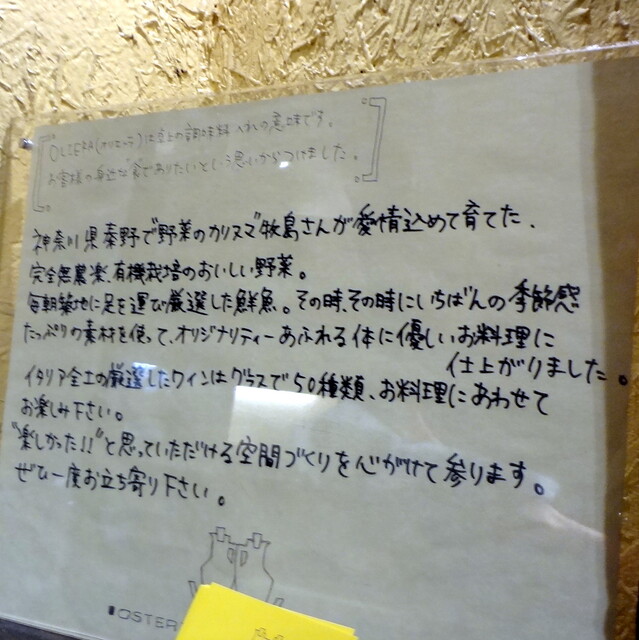 OLIERA(オリエーラ)は卓上の調味料入れの意味です。
お客様の身近な食でありたいという思いからつけました。
神奈川県秦野で野菜のカリスマ牧島さんが愛情込めて育てた、
完全無農薬、有機栽培のおいしい野菜。
毎朝築地に足を運び厳選した鮮魚。その時、その時にいちばんの季節感
たっぷりの素材を使って、オリジナリティーあふれる体に優しいお料理に
仕上がりました。
イタリア全土の厳選したワインはグラスで50種類、お料理にあわせて
お楽しみ下さい。
"楽しかった!!"と思っていただける空間づくりを心がけて参ります。
ぜひ一度お立ち寄り下さい。
OSTER